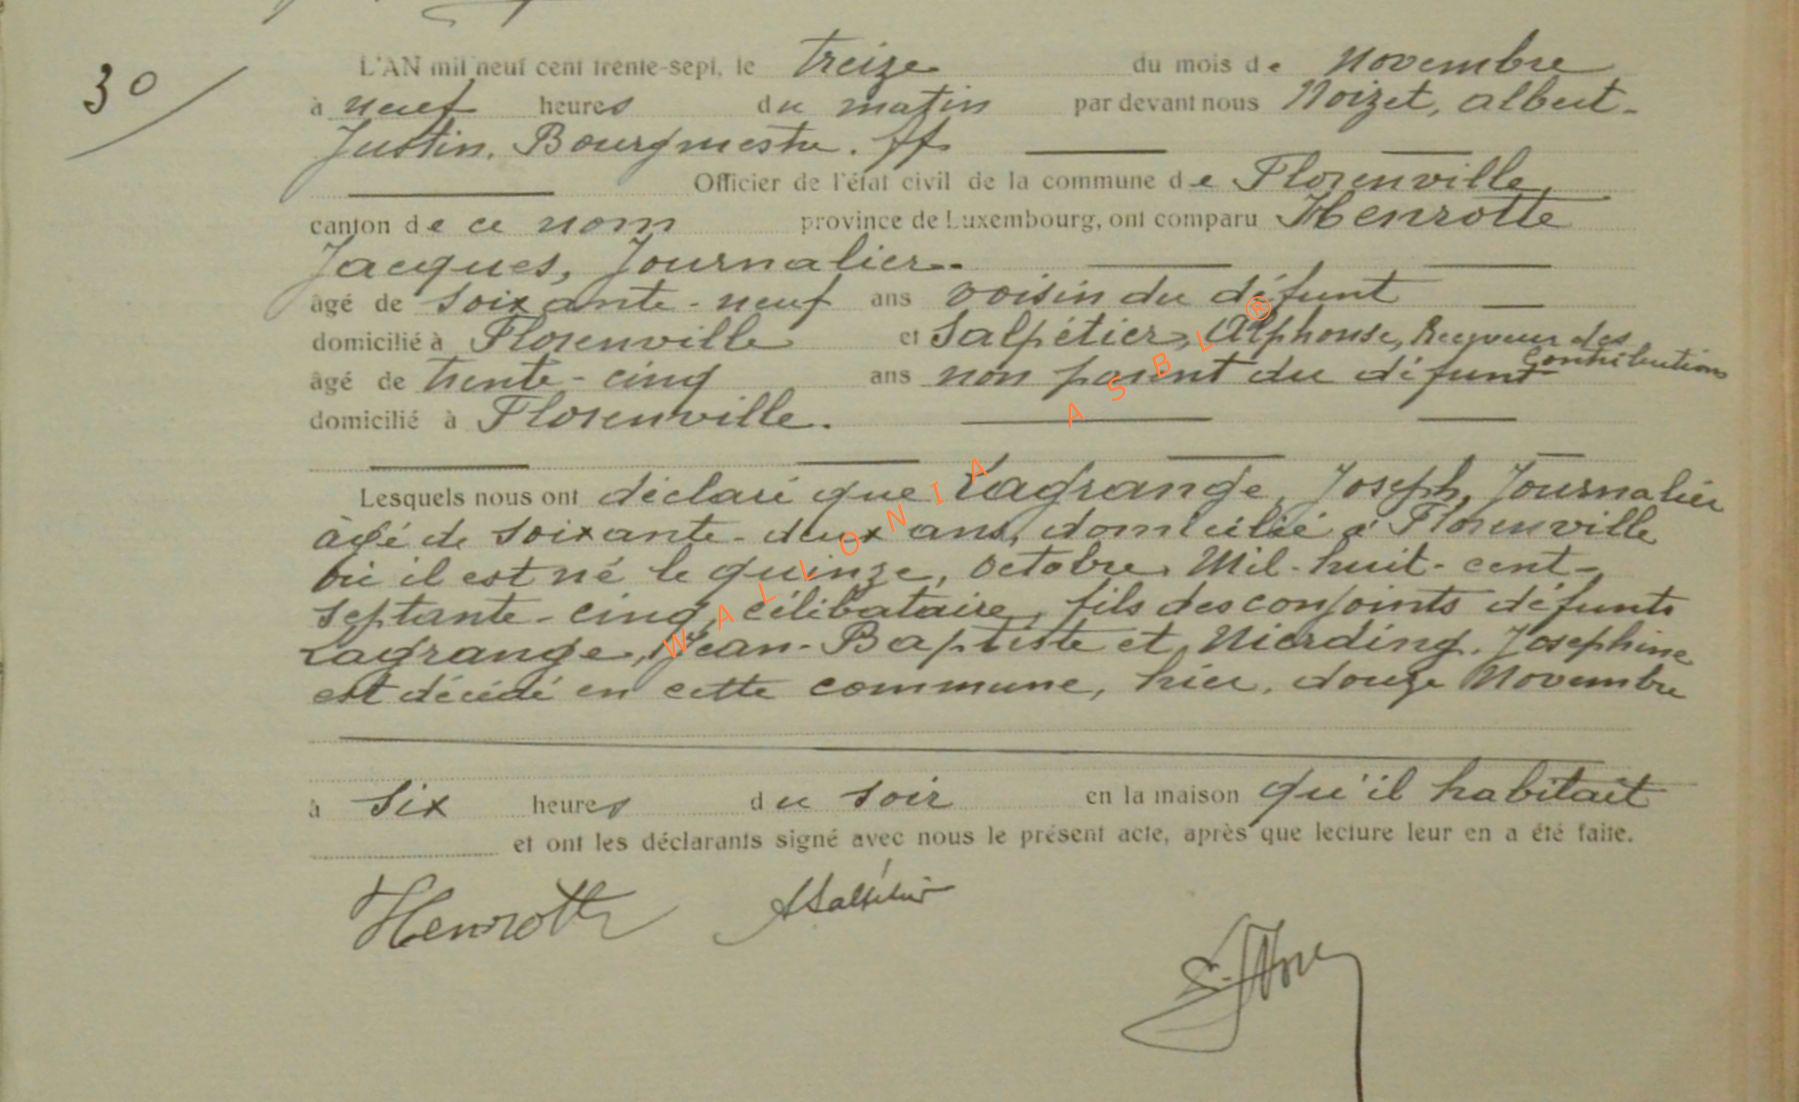 30
L'AN mil neuf cent trente-sept, le treize du mois de Novembre
à neuf heures du matin par devant nous Noizet, Albert-
Justin. Bourgmestre. ff
Officier de l'état civil de la commune de Florenville,
canton de ce nom province de Luxembourg, ont comparu Henrotte
Jacques, Journalier.
âgé de soixante-neuf ans voisin du défunt
domicilié à Florenville et Salpétier, Alphonse, Receveur des
Contributions
âgé de trente-cinq ans non parent du défunt
domicilié à Florenville.
Lesquels nous ont déclaré que Lagrange, Joseph, Journalier
âgé de soixante-deux ans, domicilié à Florenville
où il est né le quinze, octobre, Mil-huit-cent-
septante-cinq, célibataire, fils des conjoints défunts
Lagrange, Jean-Baptiste et Nierding. Josephine
est décédé en cette commune, hier, douze Novembre
à six heures du soir en la maison qu'il habitait
et ont les déclarants signé avec nous le présent acte, après que lecture leur en a été faite.
Henrotte ASalpétier
WALLONIA ASBL ®